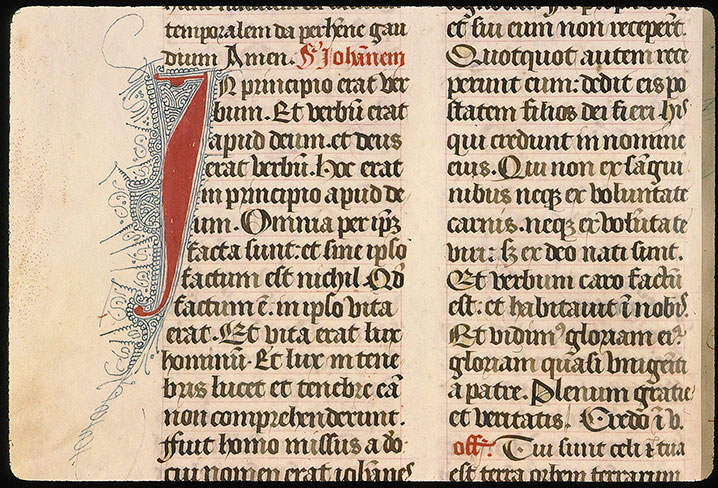 temporalem da perhēne gau
dium Amen. S' Iohānem
IN principio erat ver
bum. Et verbū erat
apud deum. et deus
erat verbū. hoc erat
in principio apud de
um. Omnia per ip̄z
facta sunt: et sine ipso
factum est nichil. Qd̄
factum ē. in ipso vita
erat. Et vita erat lux
hominū. Et lux in tene
bris lucet et tenebre eā
non comprehenderunt.
ffuit homo missus a do:
cui nomen erat iohānes
et sui eum non receperūt.
Quotquot autem rece
perunt eum: dedit eis po
statem filios dei fieri hijs
qui credunt in nomine
eius. Qui non ex sāgui
nibus neqz ex voluntate
carnis. neqz ex volūtate
viri: sz ex deo nati sunt.
Et verbum caro factū
est: et habitauit ī nobis
Et vidimꝰ gloriam eiꝰ.
gloriam quasi vnigeniti
a patre. Plenum gratie
et veritatis. Credo ī v.
off. Tui sunt celi ⁊ tua
est terra orbem terrarum